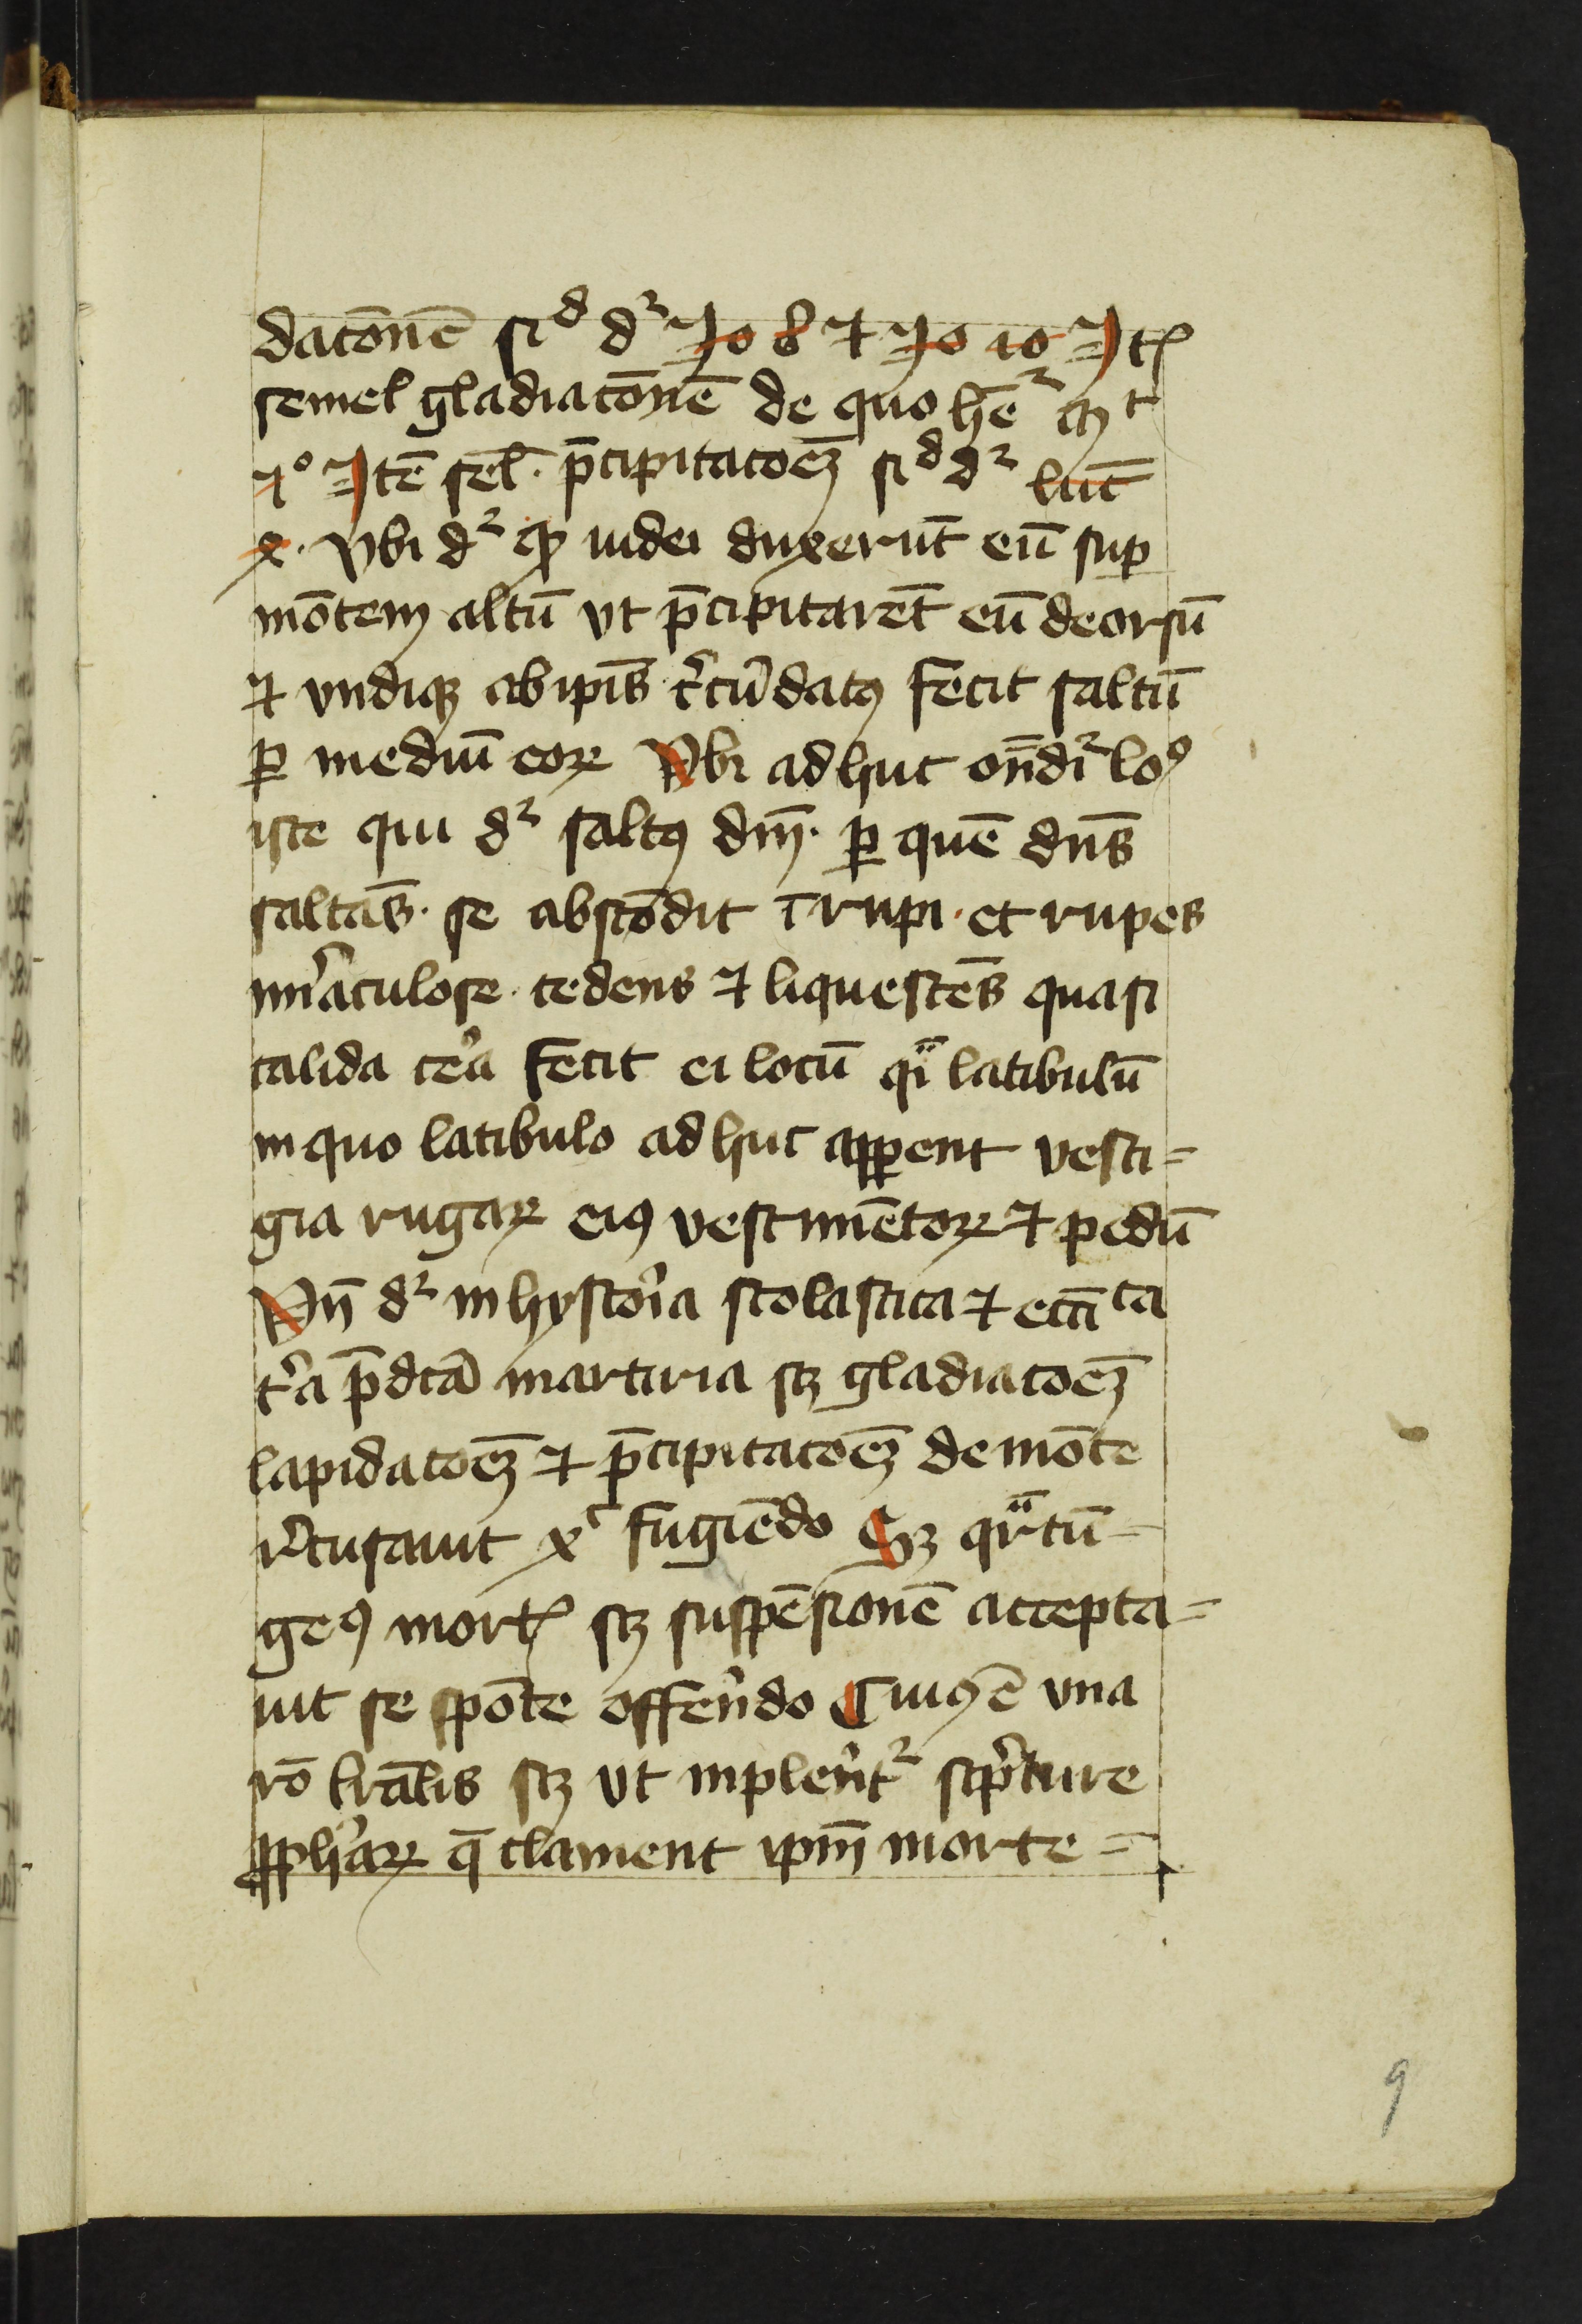 datōnē siᵈ dʳ Jo 8 ⁊ Jo 10 Itꝭ
semel gladiatōnē de quo hēʳ mᵗ
⁊° Itē sel̄. p̄cipitatoēꝫ siᵈ dʳ luc̄
x. vbi dʳ ꝙ iudei duxerūt eū suꝑ
mōtem altū vt p̄cipitarēt eū deorsū
⁊ vndiqꝫ ab ip̄is c̓cūdatꝰ fecit saltū
ꝑ mediū eoꝝ Vbi adhuc on̄dit̓ loꝰ
iste qui dʳ saltꝰ dn̄i. ꝑ quē dn̄s
saltās. se abscōdit ī rupi. et rupes
mi̓aculose. cedens ⁊ liquescēs quasi
calida ce̓a fecit ei locū qͣi latibulū
in quo latibulo adhuc apꝑent vesti=
gia rugaꝝ eiꝰ vestimētoꝝ ⁊ pedū
Vn̄ dʳ in hystoi̓a scolastica ⁊ ecīa ta
t̓a p̄dcā martiria scꝫ gladiatoēꝫ
lapidatoēꝫ ⁊ p̄cipitatoēꝫ de mōte
r̓cusauit xᶜ fugiēdo Sꝫ qͣrtū=
geꝰ mortꝭ scꝫ suspēsionē accepta=
uit se spōte offeren̓do Cuiꝰ ē vna
rō lrālis scꝫ vt inplen̓tʳ scp̓ture
ꝓph̓aꝝ q̄ clament ip̄m morte=
9